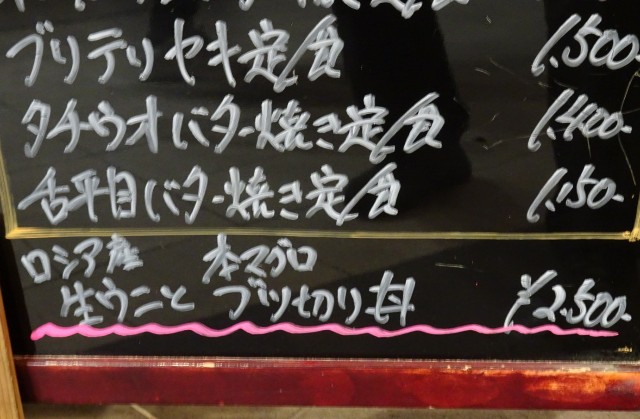 ブリテリヤキ定食 1.500-
タチウオバター焼き定食 1.400-
舌平目バター焼き定食 1.150-
ロシア産 本マグロ
生ウニと ブツ切り丼 ¥2.500-